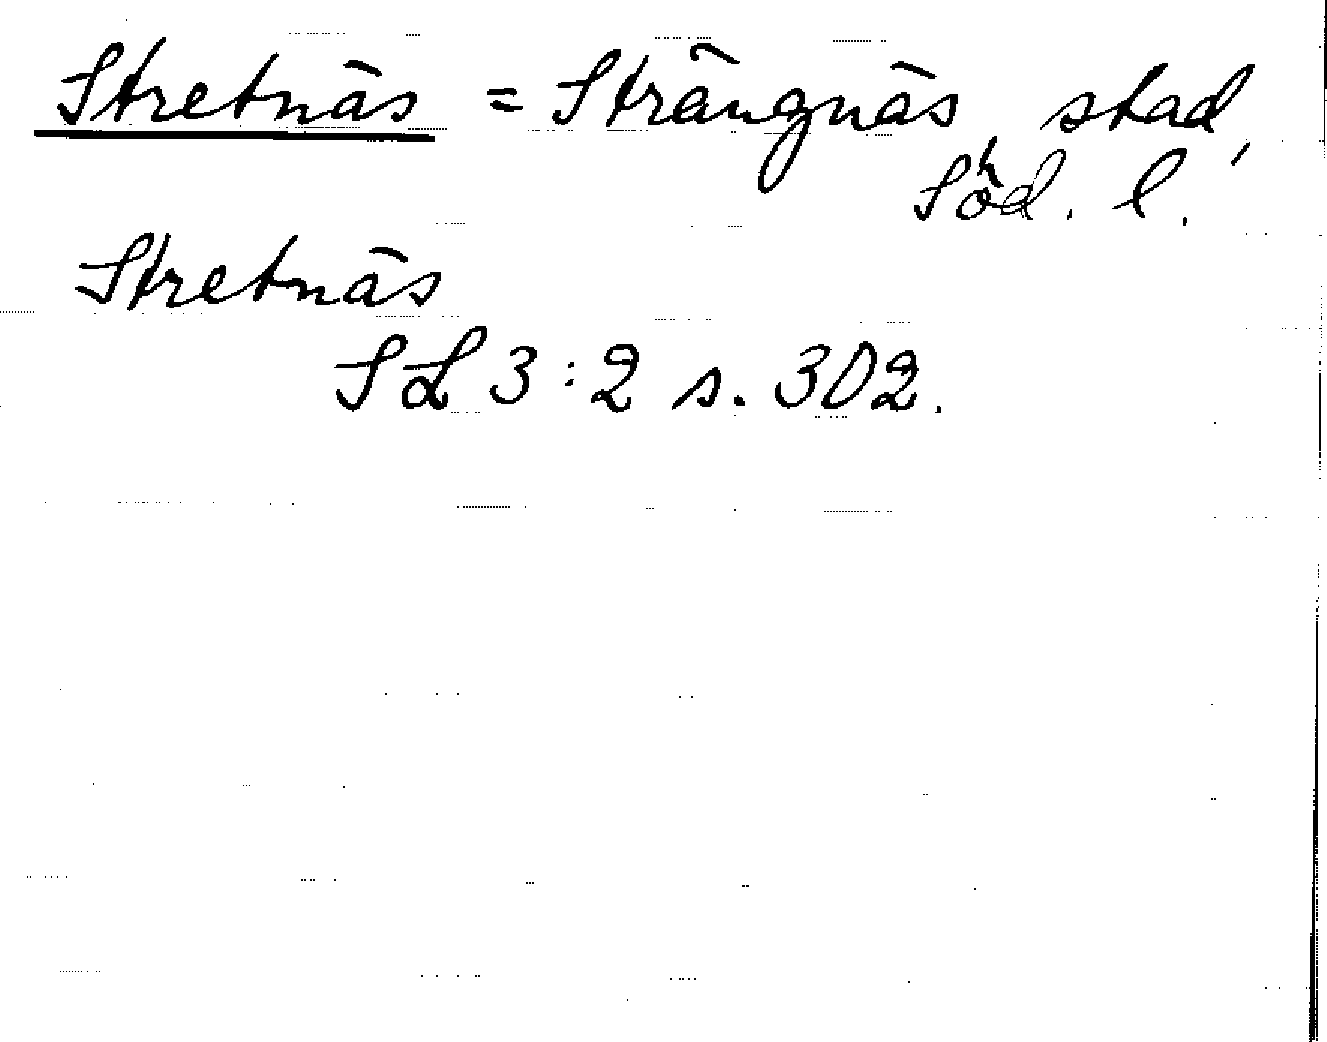 Stretnäs = Strängnäs, stad,
Söd. l.
Stretnäs
SL 3:2 s. 302.